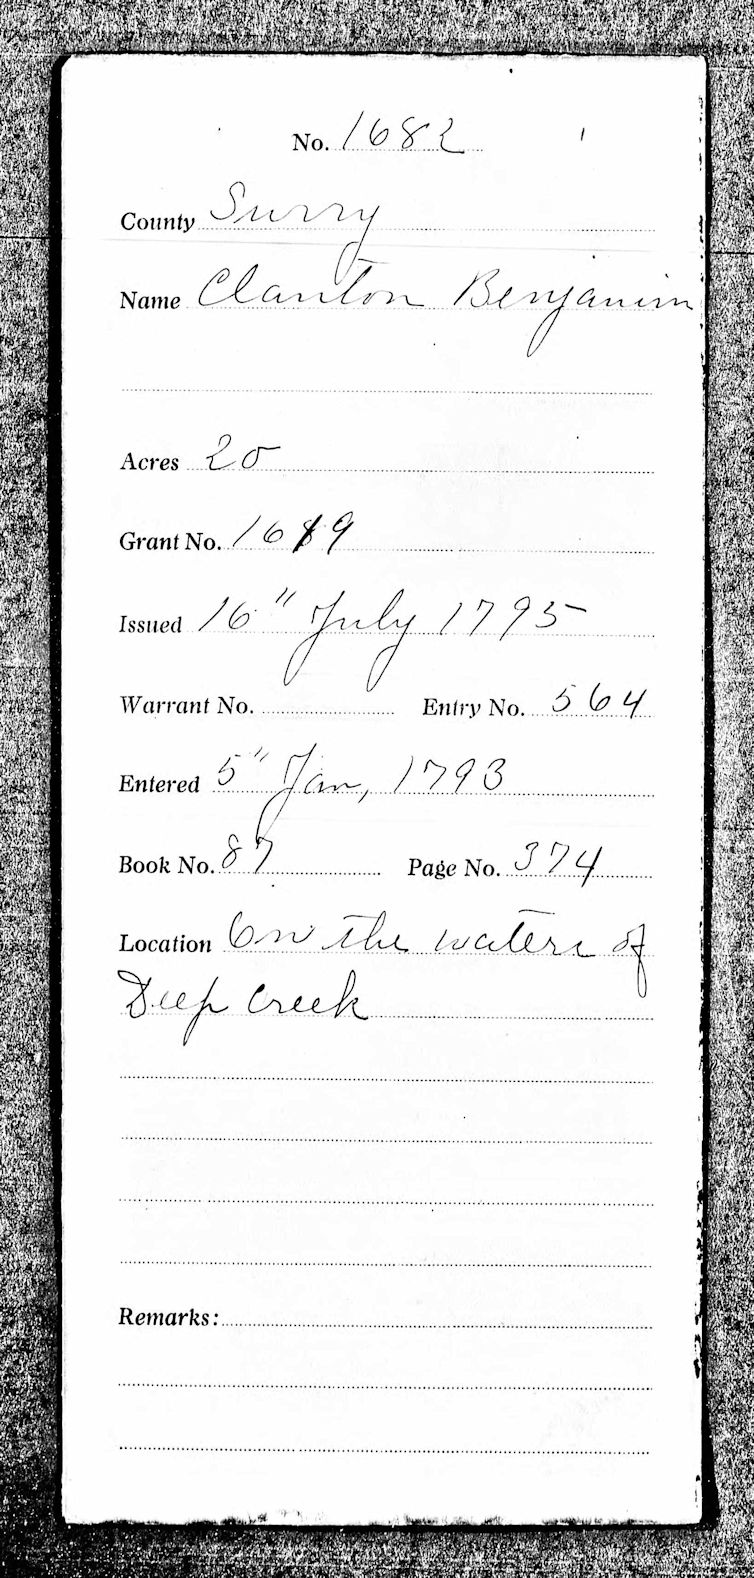 No. 1682
County Surry
Name Clanton Benjamin
Acres 20
Grant No.
Issued 16" July 1795
Warrant No. Entry No. 564
Entered 5" Jan, 1793
Book No. 87 Page No. 374
Location On the waters of
Deep Creek
Remarks: